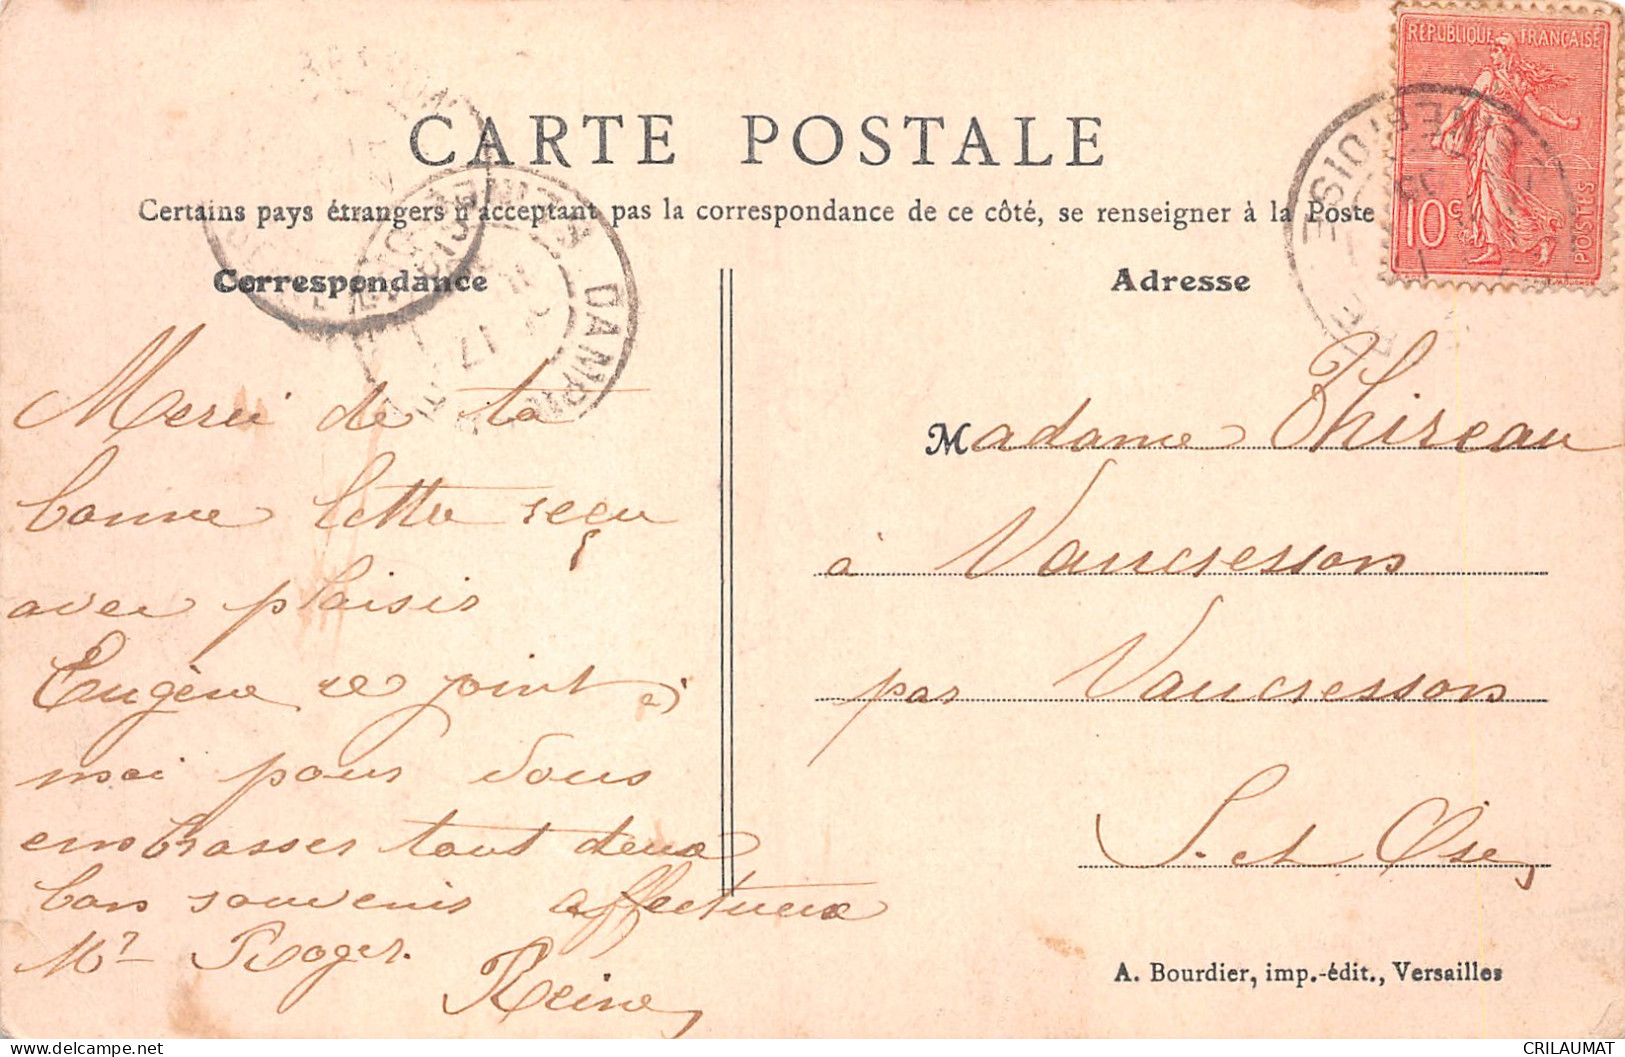 RÉPUBLIQUE FRANÇAISE
10c
POSTES
CARTE POSTALE
Certains pays étrangers n'acceptent pas la correspondance de ce côté, se renseigner à la Poste
Correspondance
Adresse
DAMPI
17
Merci de ta
bonne lettre reçu
avec plaisir
Eugène se joint à
moi pour vous
embrasser tout deux
bon souvenir affectueux
Mr Roger.
Reine
Madame Thireau
à Vaucresson
par Vaucresson
S. et Oise
A. Bourdier, imp.-édit., Versailles
CRILAUMAT